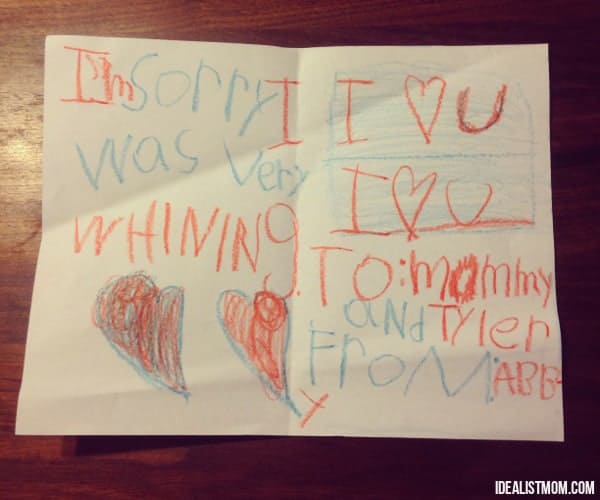 I'm Sorry I
was very
WHINING.
I ♥ U
I ♥ U
TO: mommy
aNd Tyler
FroM: ABB
Y
IDEALISTMOM.COM